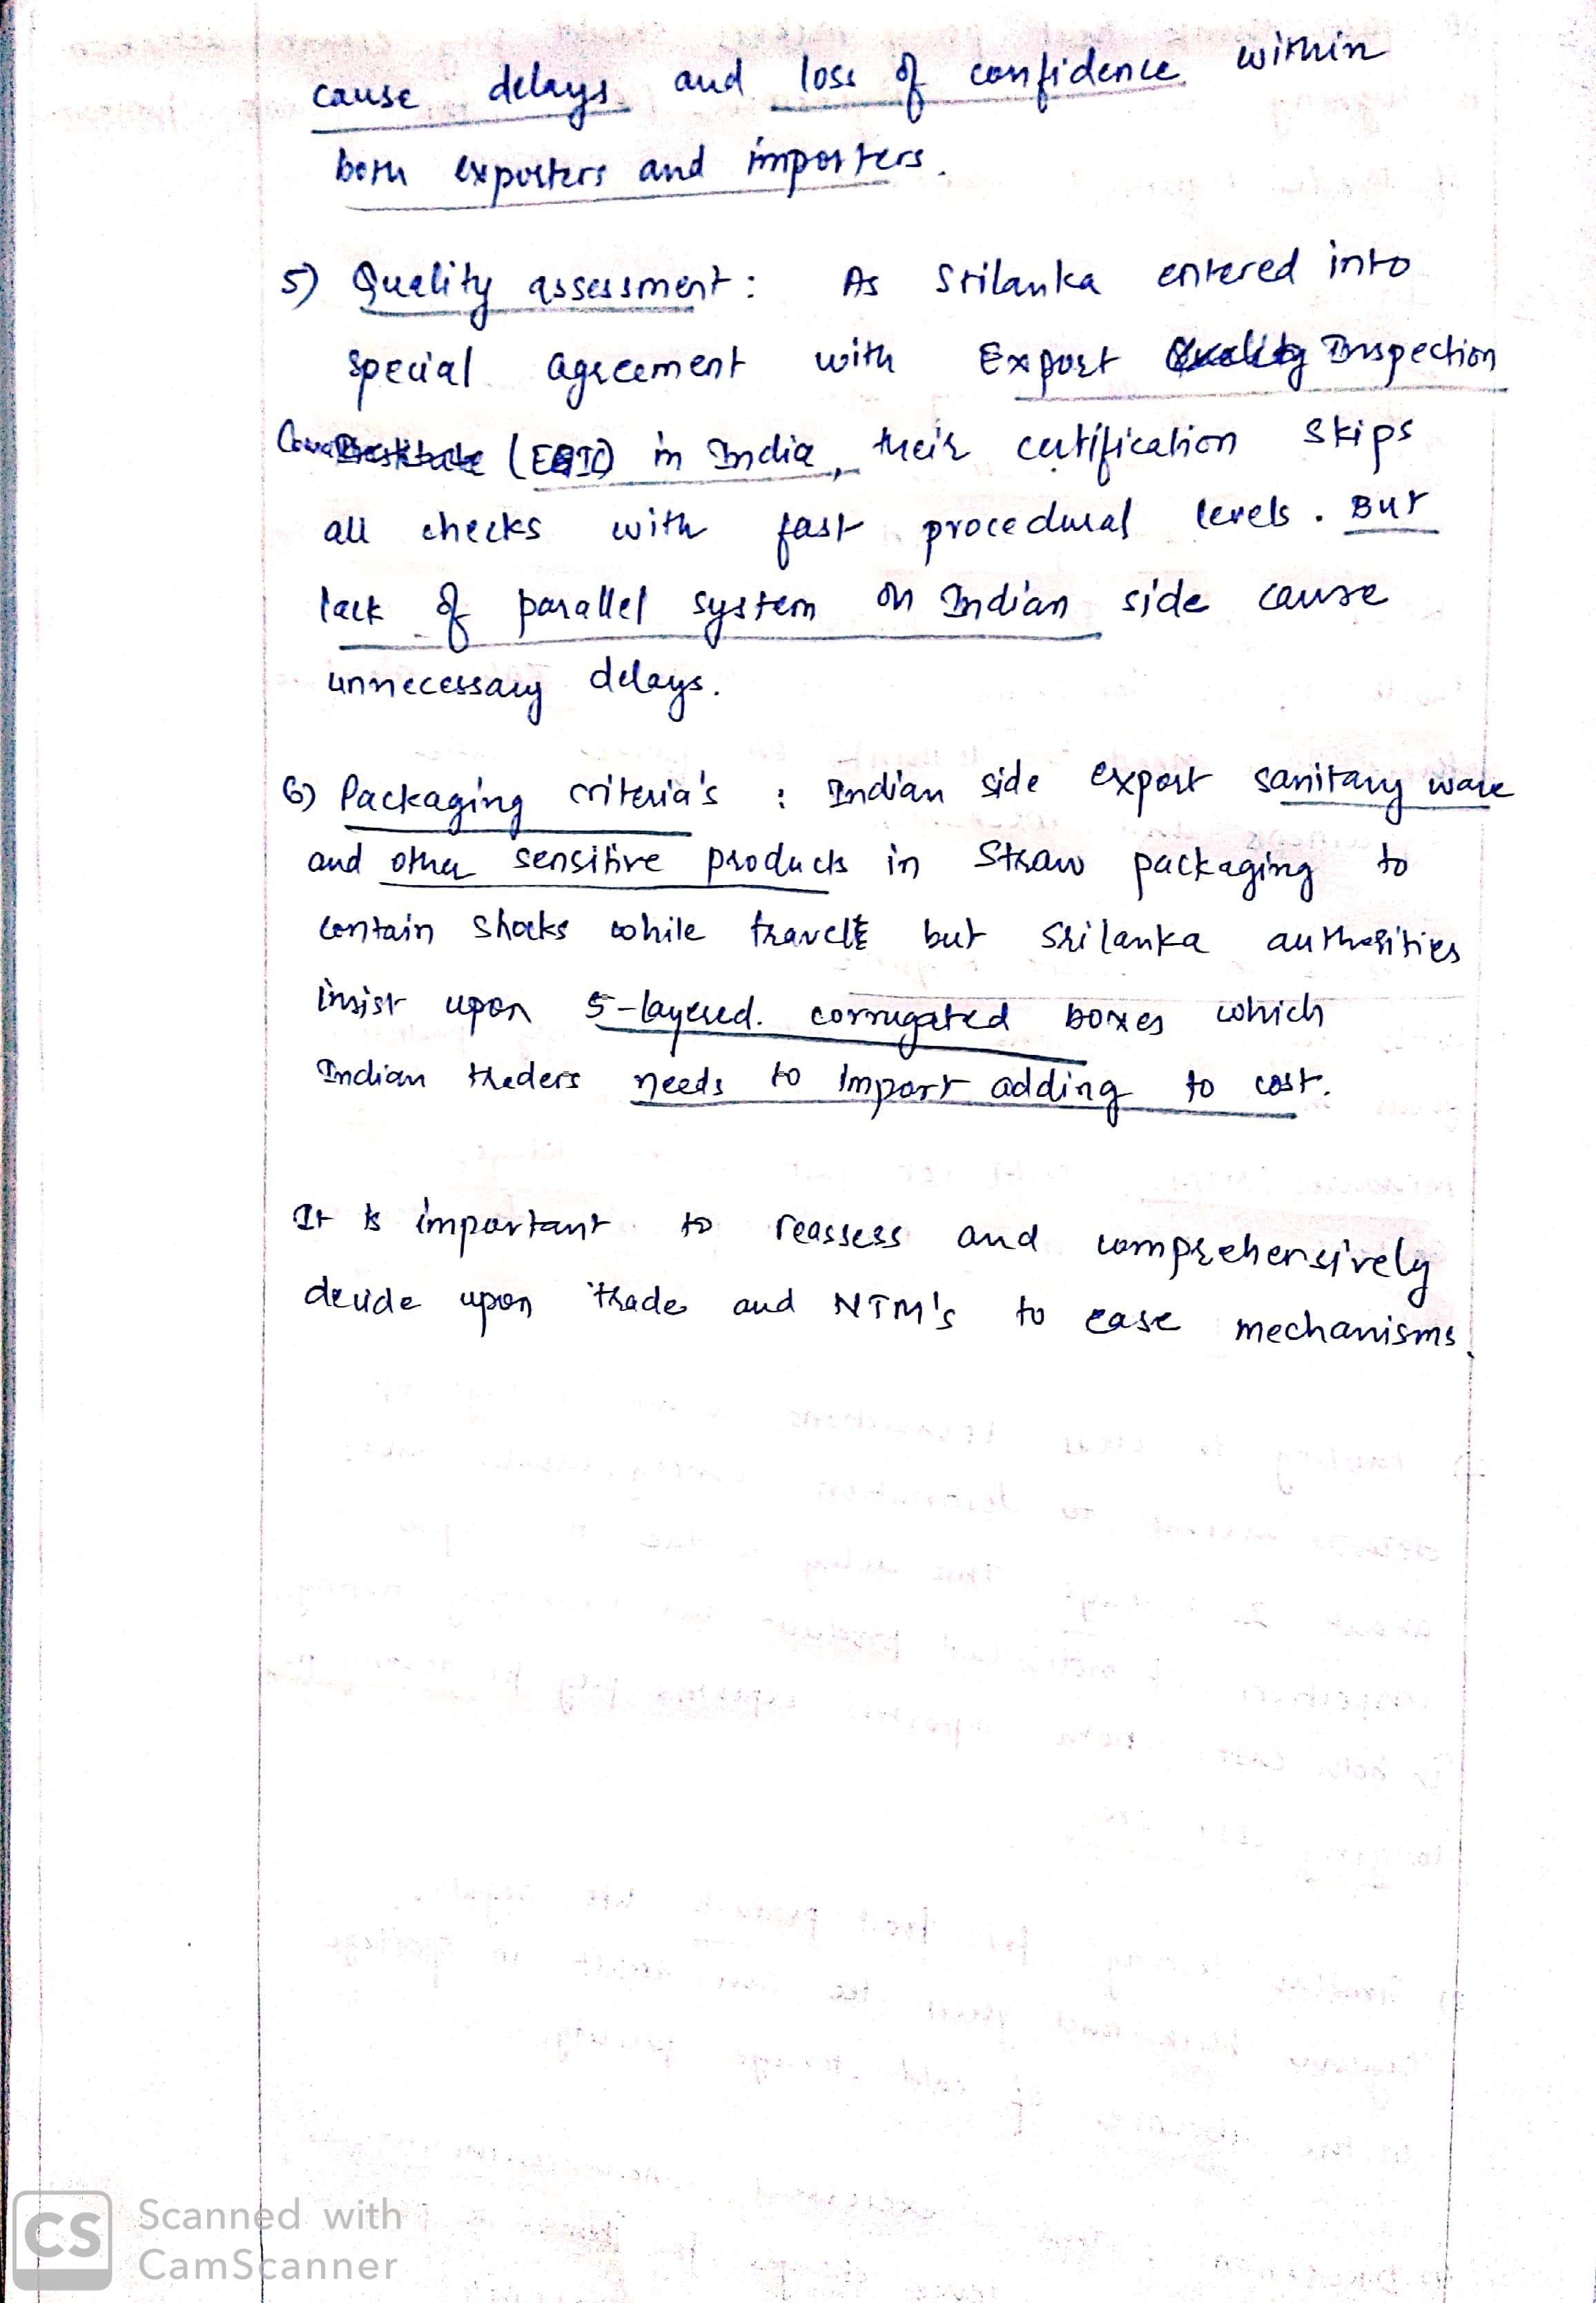 cause delays and loss of confidence within
both exporters and importers.
5) Quality assessment : As Srilanka entered into
special agreement with Export Inspection
(EIC) in India, their certification skips
all checks with fast procedural levels. But
lack of parallel system on Indian side cause
unnecessary delays.
6) Packaging criteria's : Indian side export sanitary ware
and other sensitive products in straw packaging to
contain shocks while travel but Srilanka authorities
insist upon 5-layered. corrugated boxes which
Indian traders needs to import adding to cost.
It is important to reassess and comprehensively
decide upon trade and NTM's to ease mechanisms.
CS Scanned with
CamScanner